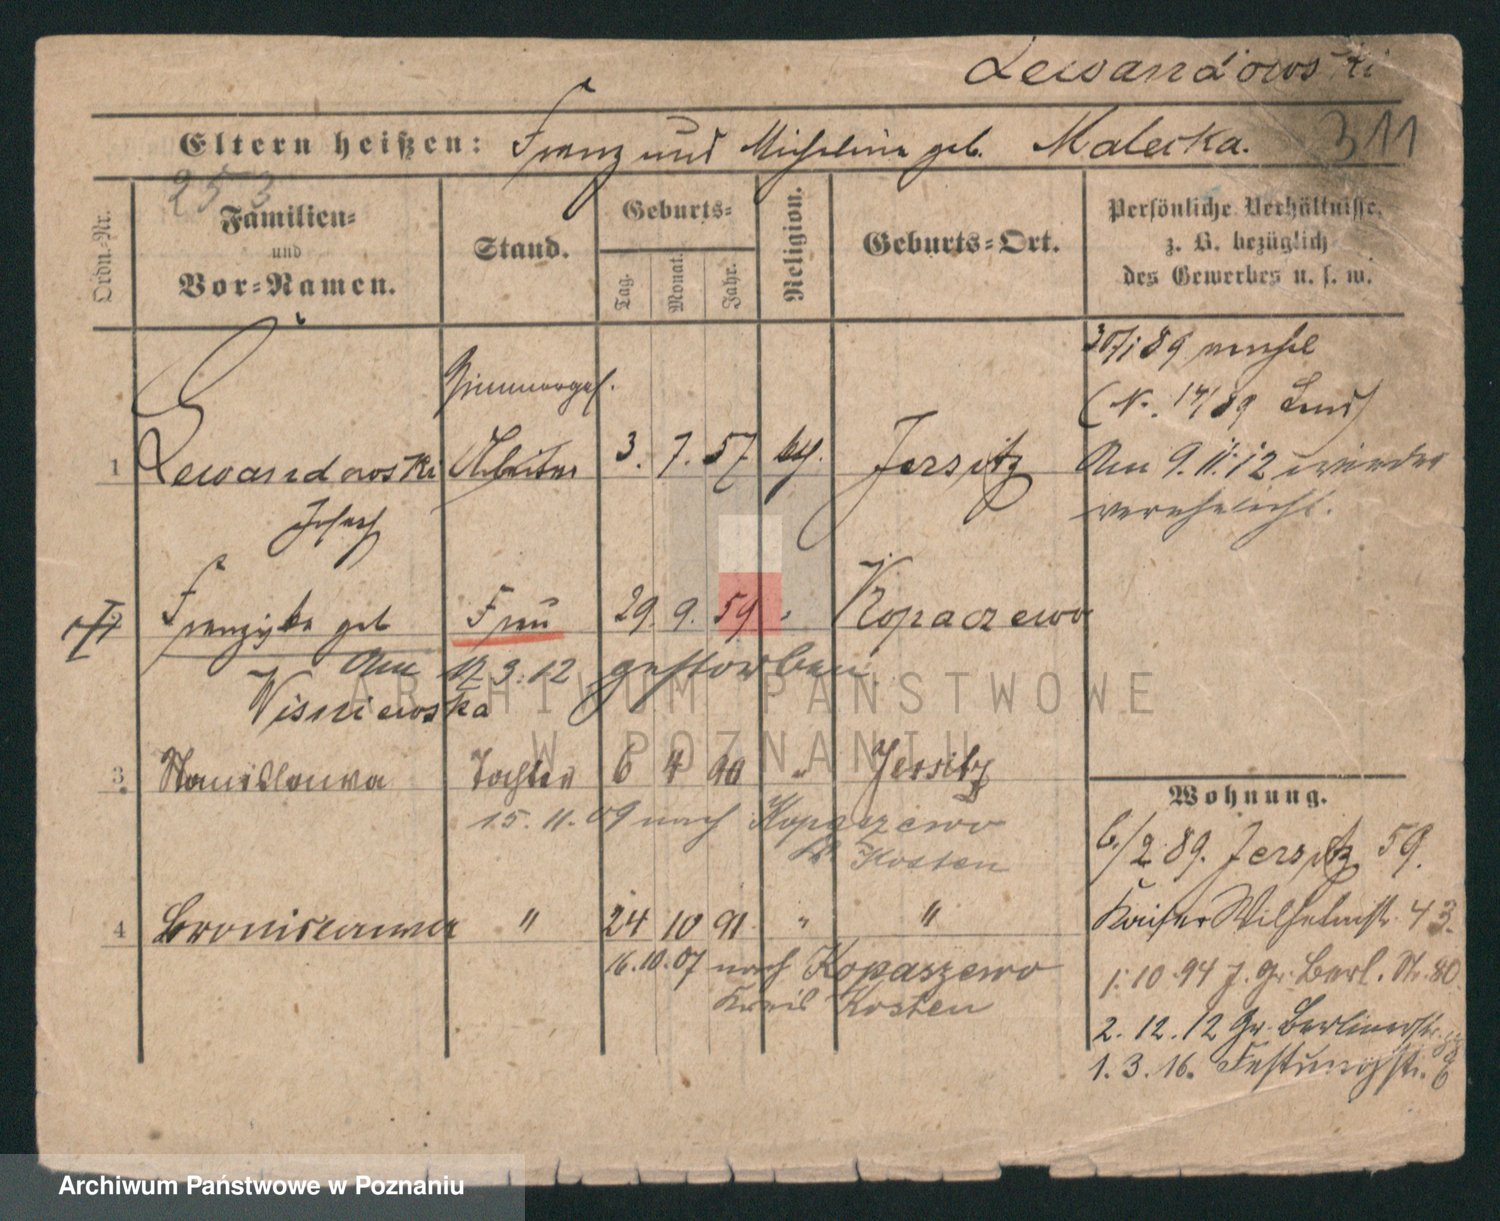 Lewandowski
Eltern heißen: Franz und Micheline geb. Malecka.
311
253
Ordn.-Nr.
Familien- und Vor-Namen.
Stand.
Geburts-
Tag. Monat. Jahr.
Religion.
Geburts-Ort.
Persönliche Verhältnisse, z. B. bezüglich des Gewerbes u. s. w.
Zimmerges.
1 Lewandowski Arbeiter 3. 7. 57. kth. Jersitz
Joseph
30/1 89
(N. 14/89
Am 9.11.12 wieder
verehelicht.
2 Franziska geb Frau 29. 9. 59 " Kopaczewo
Am 17 3.12 gestorben.
Wisniewska
3. Stanislawa Tochter 6 4 90 " Jersitz
15.11.09 nach Kopaszewo
Kr Kosten
4 Bronislawa " 24 10 91 " "
16.10.07 nach Kopaszewo
Kreis Kosten
Wohnung.
6./2 89. Jersitz 59.
Kaiser Wilhelmstr. 43.
1.10 94 J. Gr. Berl. Str. 80.
2.12.12 Gr. Berlinerstr.
1.3.16. Festungstr.
ARCHIWUM PAŃSTWOWE
W POZNANIU
Archiwum Państwowe w Poznaniu